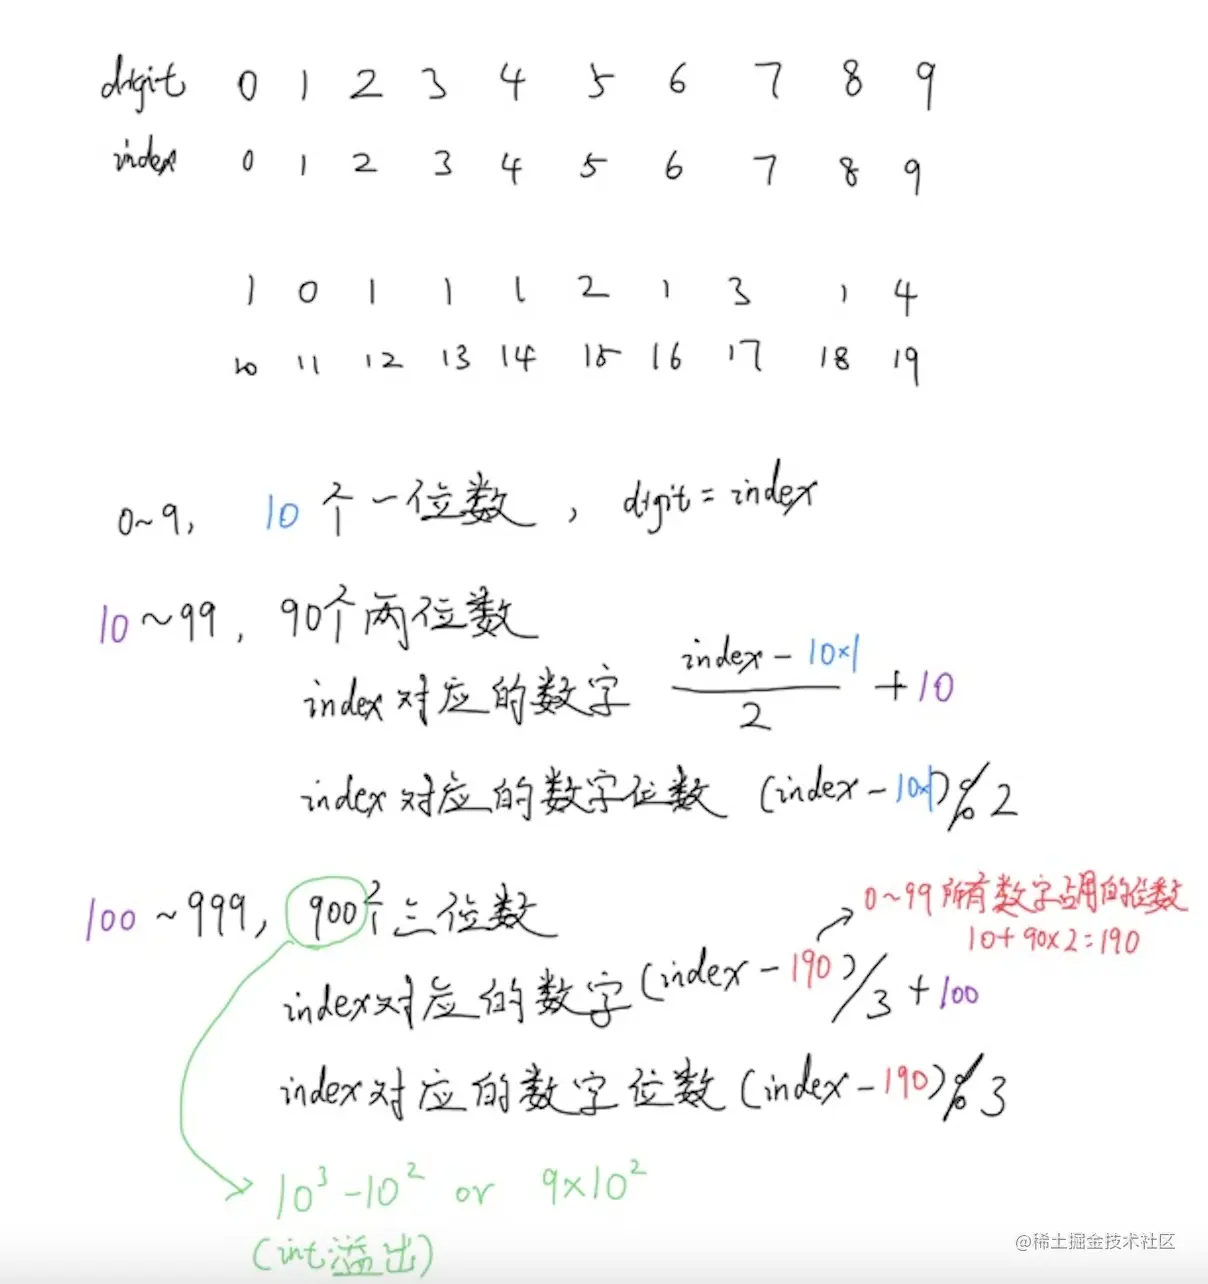 digit 0 1 2 3 4 5 6 7 8 9
index 0 1 2 3 4 5 6 7 8 9
1 0 1 1 1 2 1 3 1 4
10 11 12 13 14 15 16 17 18 19
0~9, 10个一位数, digit = index
10~99, 90个两位数
index对应的数字 (index - 10×1)/2 + 10
index对应的数字位数 (index - 10×1) % 2
100~999, 900个三位数
0~99所有数字占用的位数
10+90×2=190
index对应的数字 (index - 190)/3 + 100
index对应的数字位数 (index - 190) % 3
10³-10² or 9×10²
(int溢出)
@稀土掘金技术社区